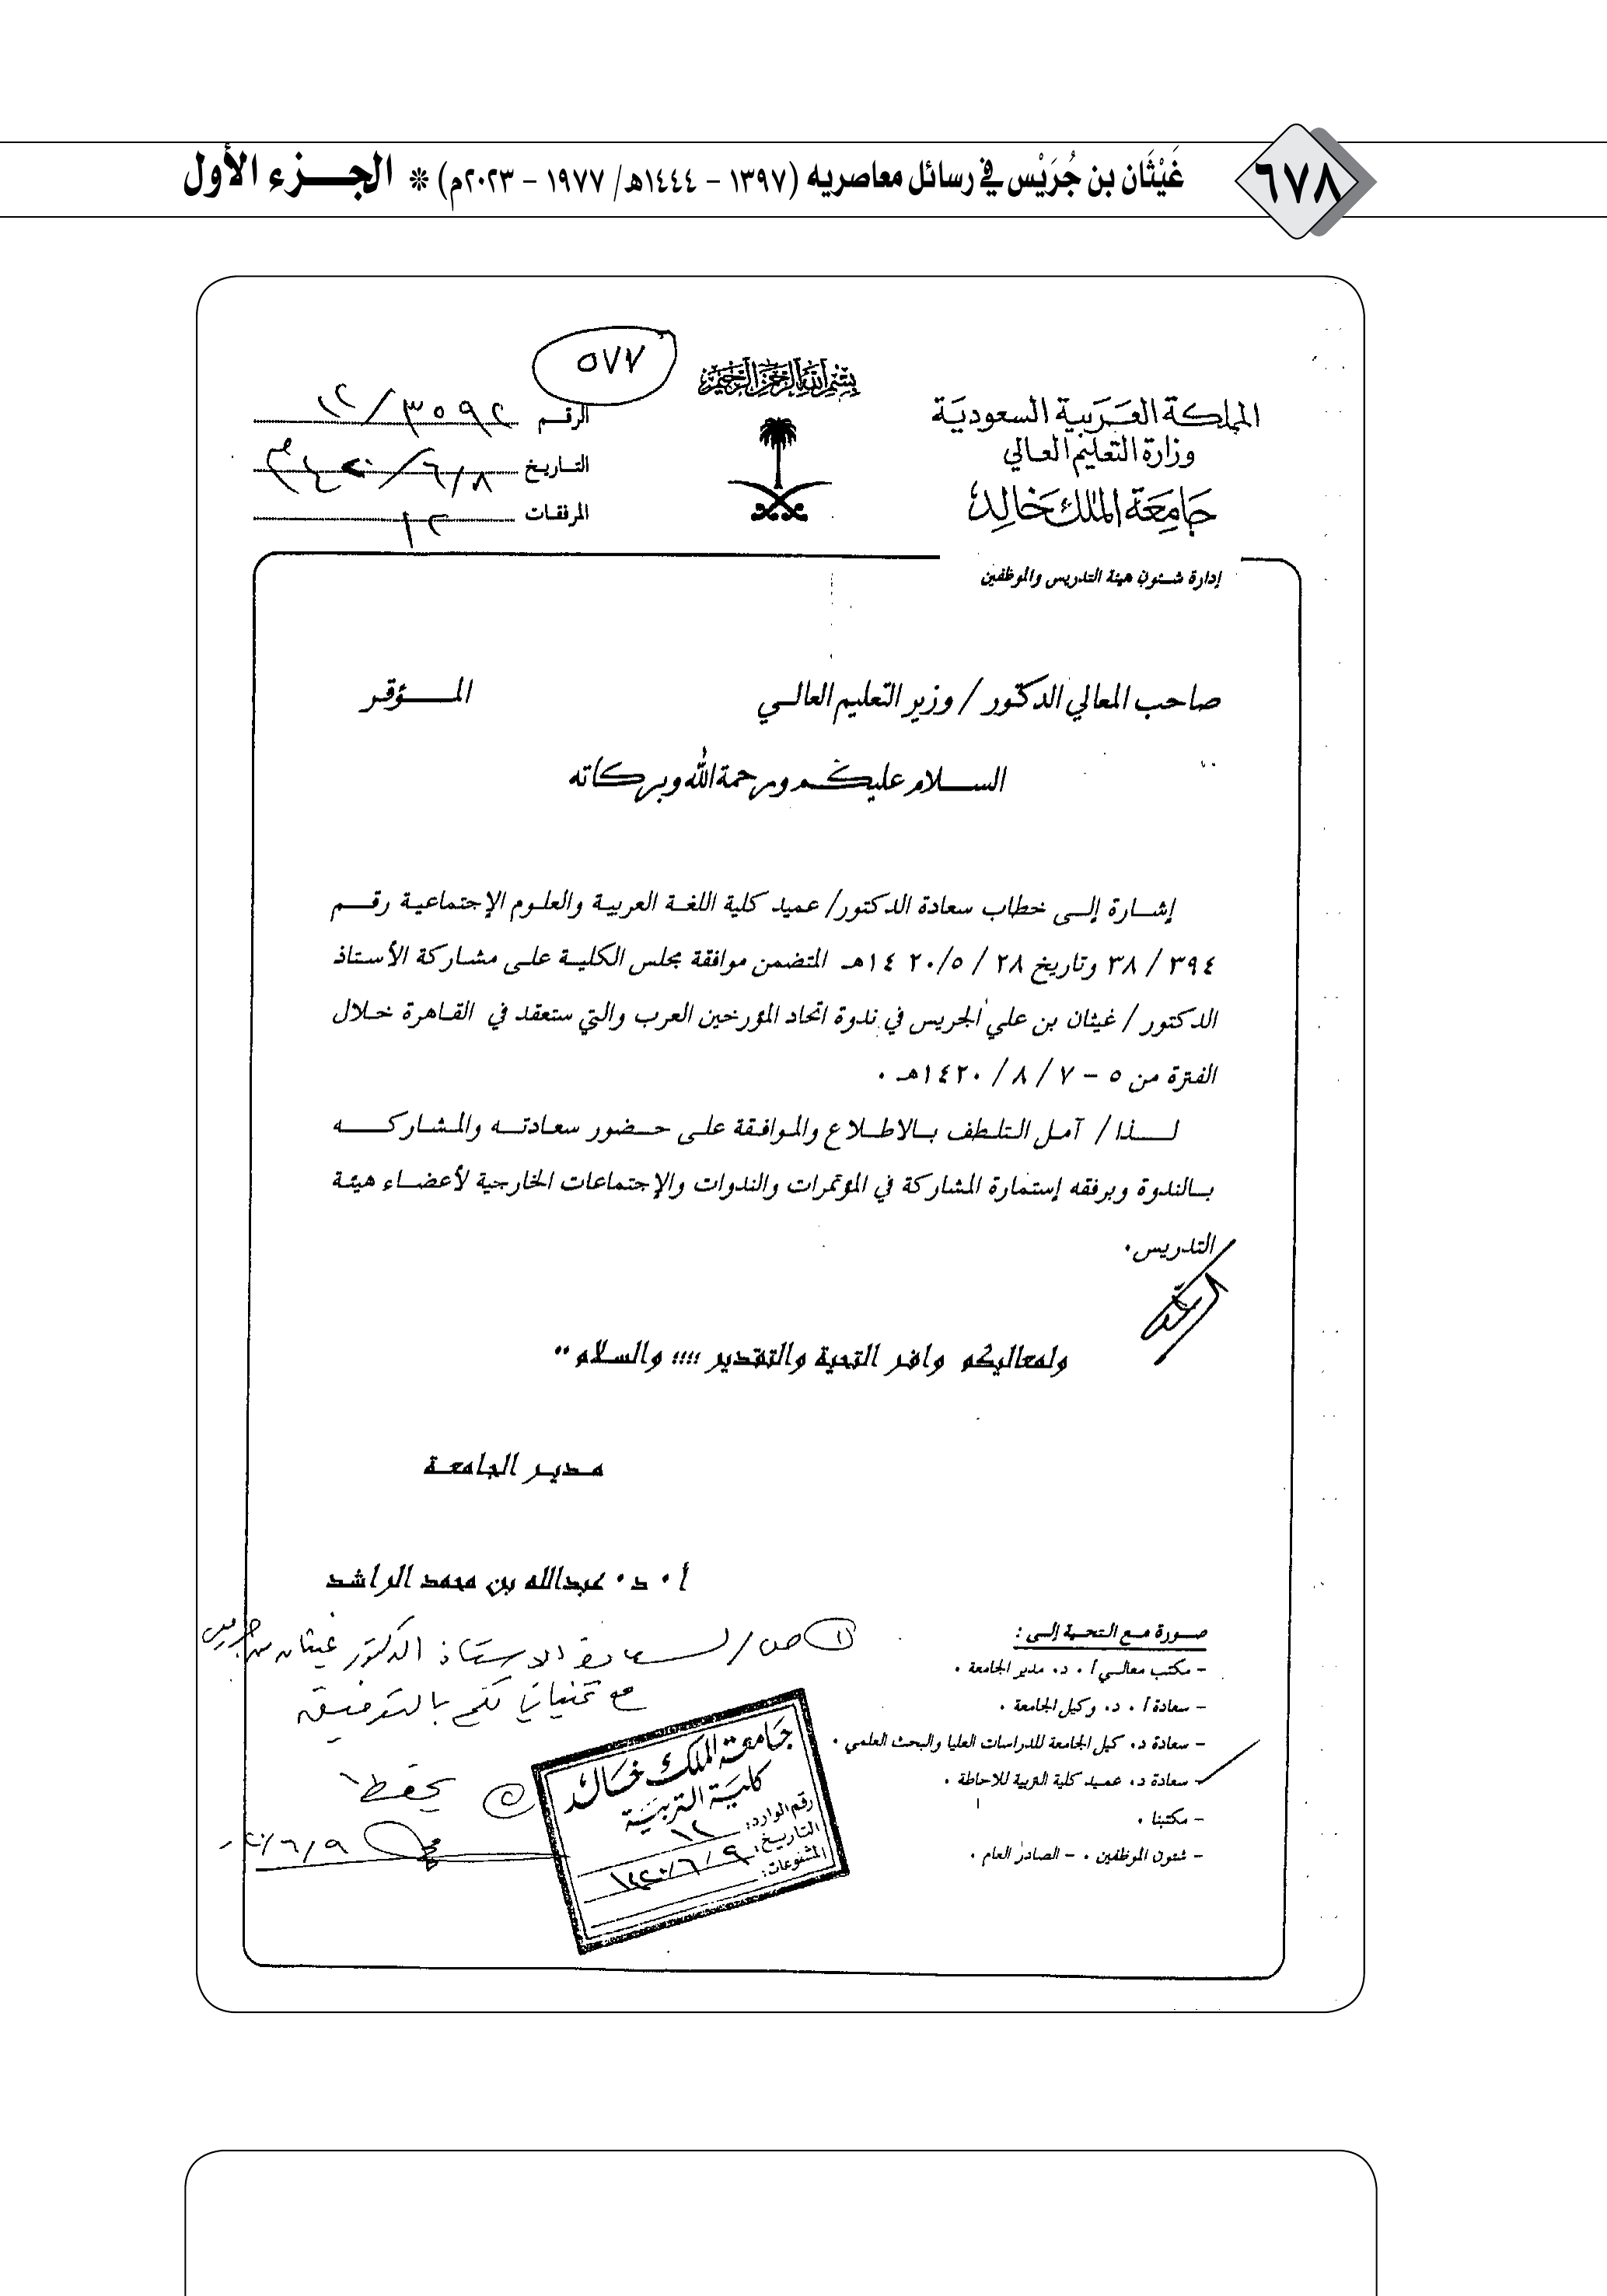 ٦٧٨
غَيْثَان بن جُرَيْس في رسائل معاصريه (١٣٩٧ - ١٤٤٤هـ/ ١٩٧٧ - ٢٠٢٣م) * الجـــزء الأول
٥٧٧
بسم الله الرحمن الرحيم
المملكة العربية السعودية
وزارة التعليم العالي
جامعة الملك خالد
إدارة شئون هيئة التدريس والموظفين
الرقم ١٢/٣٥٩٢
التاريخ ٦/٨/
المرفقات ١٢
صاحب المعالي الدكتور / وزير التعليم العالي المـــؤقر
الســلام عليكـم ورحمة الله وبركاته
إشارة إلى خطاب سعادة الدكتور/ عميد كلية اللغة العربية والعلوم الإجتماعية رقم
٣٩٤ / ٣٨ وتاريخ ٢٨ / ٥/ ١٤٢٠هـ المتضمن موافقة مجلس الكلية على مشاركة الأستاذ
الدكتور / غيثان بن علي الجريس في ندوة اتحاد المؤرخين العرب والتي ستعقد في القاهرة خلال
الفترة من ٥ - ٧ / ٨ / ١٤٢٠هـ .
لـــذا / آمل التلطف بالاطلاع والموافقة على حضور سعادته والمشاركه
بالندوة وبرفقه إستمارة المشاركة في المؤتمرات والندوات والإجتماعات الخارجية لأعضاء هيئة
التدريس.
ولمعاليكم وافر التحية والتقدير ،،،، والسلام ..
مدير الجامعة
أ . د . عبدالله بن محمد الراشد
صورة مع التحية إلى :
- مكتب معالي أ . د. مدير الجامعة .
- سعادة أ . د. وكيل الجامعة .
- سعادة د. كيل الجامعة للدراسات العليا والبحث العلمي .
- سعادة د. عميد كلية التربية للاحاطة .
- مكتبنا .
- شئون الموظفين . - الصادر العام .
١ ص/ لسعادة الاستاذ الدكتور غيثان بن جريس
مع تمنياتي لكم بالتوفيق
يحفظ
٦/٩/
جامعة الملك خالد
كلية التربية
رقم الوارد: ١٢
التاريخ: ٦/٩/
المشفوعات: